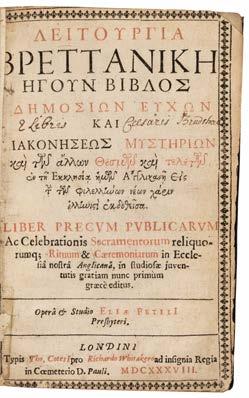 ΛΕΙΤΟΥΡΓΙΑ
ΒΡΕΤΤΑΝΙΚΗ
ΗΓΟΥΝ ΒΙΒΛΟΣ
ΔΗΜΟΣΙΩΝ ΕΥΧΩΝ
E Libris ΚΑΙ Caesaris
ΙΑΚΟΝΗΣΕΩΣ ΜΥΣΤΗΡΙΩΝ
καὶ τῶν ἄλλων Θεσμῶν καὶ τελετῶν,
ἐν τῇ Ἐκκλησίᾳ ἡμῶν
τῶν φιλελλήνων νέων χάριν
ἑλληνιστὶ ἐκδοθεῖσα.
LIBER PRECUM PUBLICARUM
Ac Celebrationis Sacramentorum reliquo-
rumq; Rituum & Cæremoniarum in Eccle-
siâ nostrâ Anglicanâ, in studiosæ juven-
tutis gratiam nunc primum
græcè editus.
Operâ & Studio ELIÆ PETILI
Presbyteri.
LONDINI
Typis Tho. Cotesi pro Richardo Whitakero ad insignia Regia
in Cœmeterio D. Pauli. MDCXXXVIII.